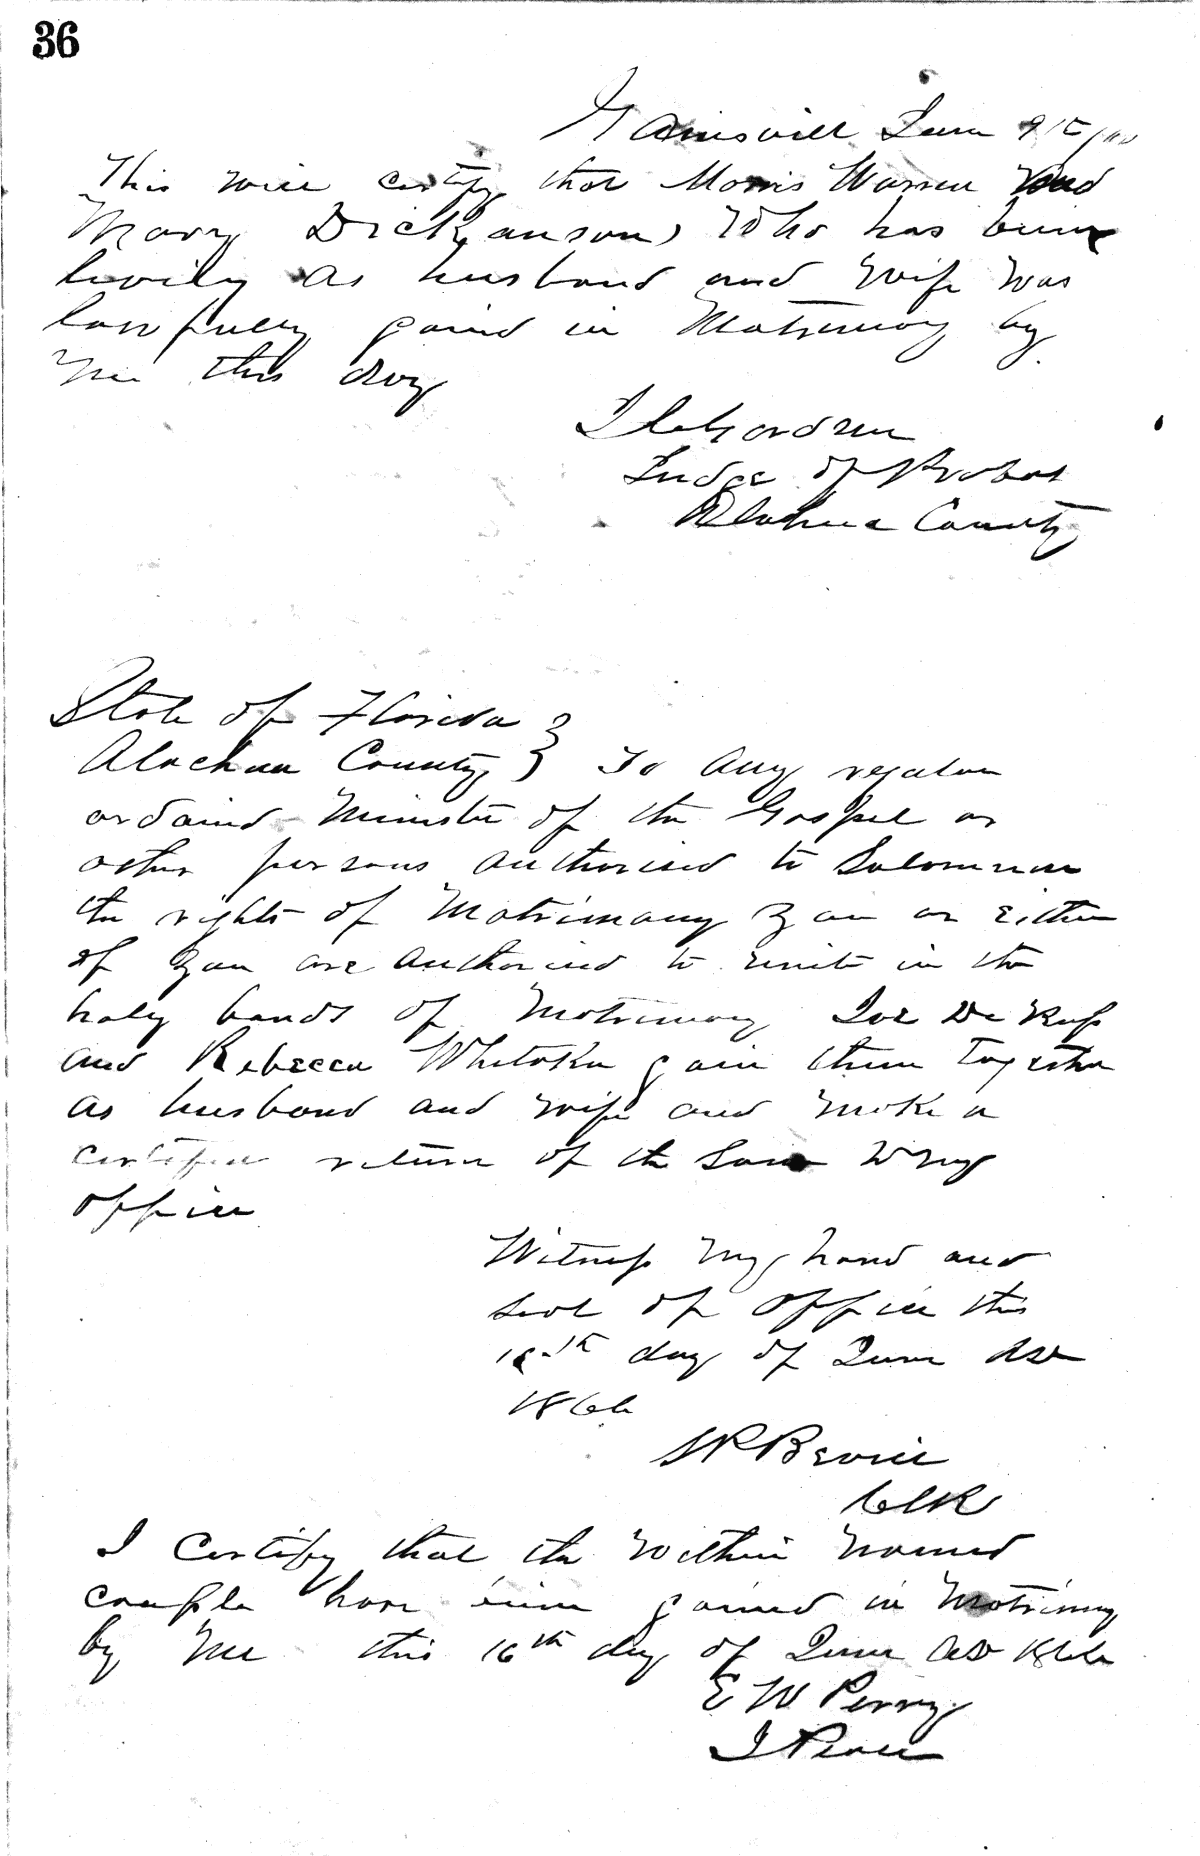 36
Gainsvill June 9th
This will certify that Morris Warren and
Mary Dickanson, Who has bein
livily as husband and wife was
lawfully joind in Matrimony by
Me this day
Judge of Probat
Alachua County
State of Florida }
Alachua County } To any regular
ordaind Minister of the Gospel or
other persons authorised to Solomnise
the rights of Matrimony You or Either
of You are authorised to unite in the
holy bands of Matrimony Joe De
and Rebecca Whitaker join them Together
as husband and wife and make a
certified return of the Same to my
office
Witness My hand and
seal of office this
day of June AD
1866
S R Bevill
Clk
I Certify that the Within Named
couple have bein joined in Matrimony
by Me this 16th day of June AD 1866
E W Perry
J Peace